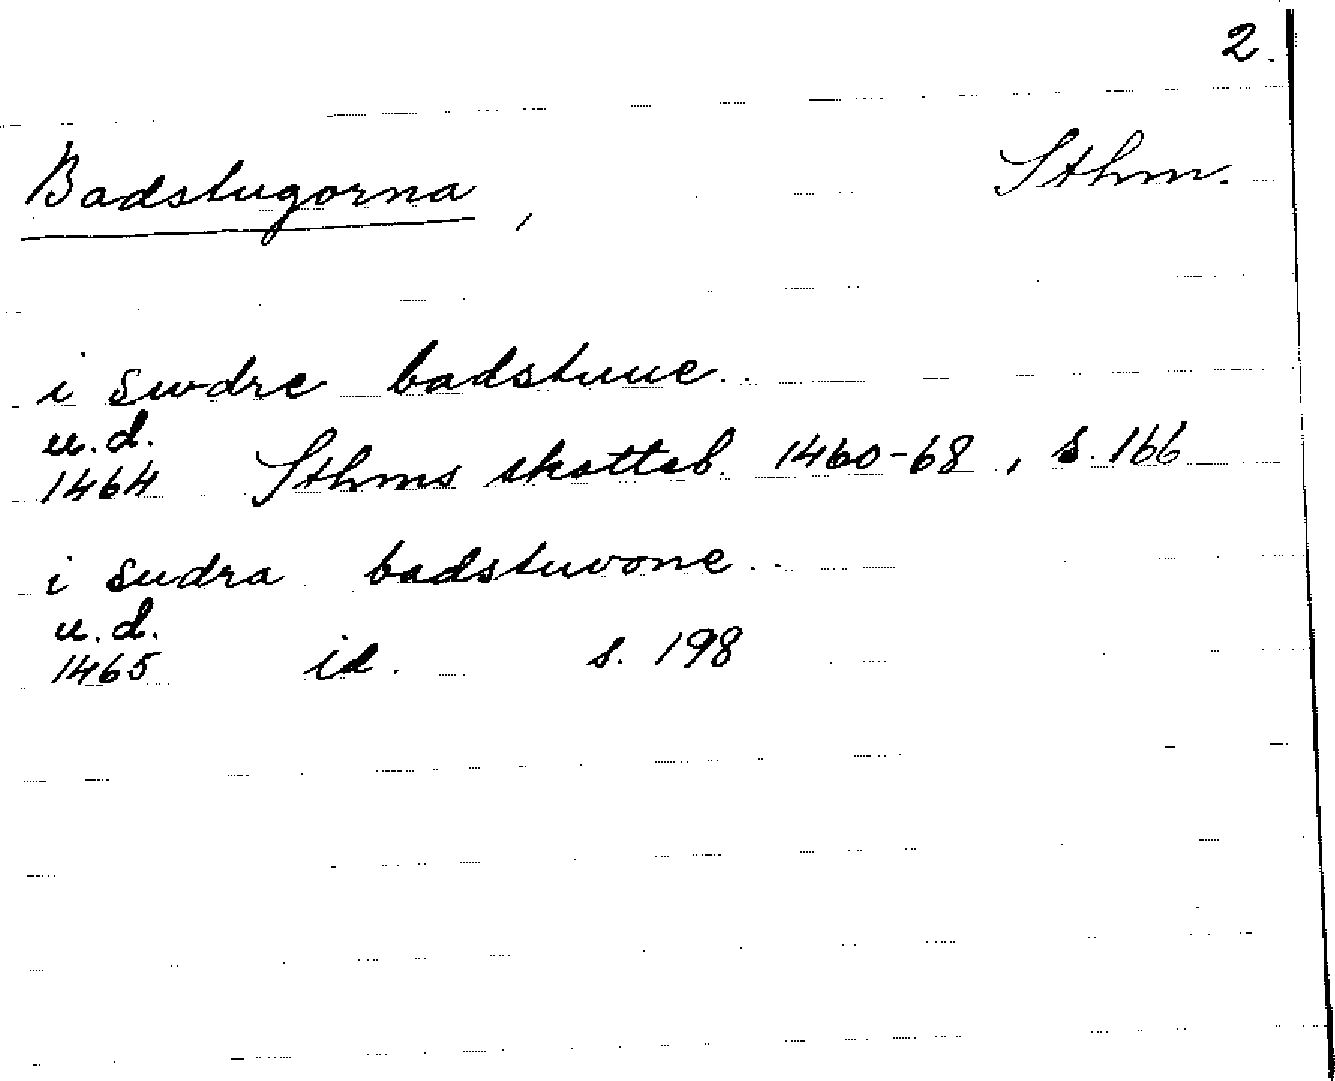 2.
Badstugorna, Sthm.
i swdre badstuue.
u.d.
1464 Sthms skatteb. 1460-68, s. 166
i sudra badstuvone.
u.d.
1465 id. s. 198